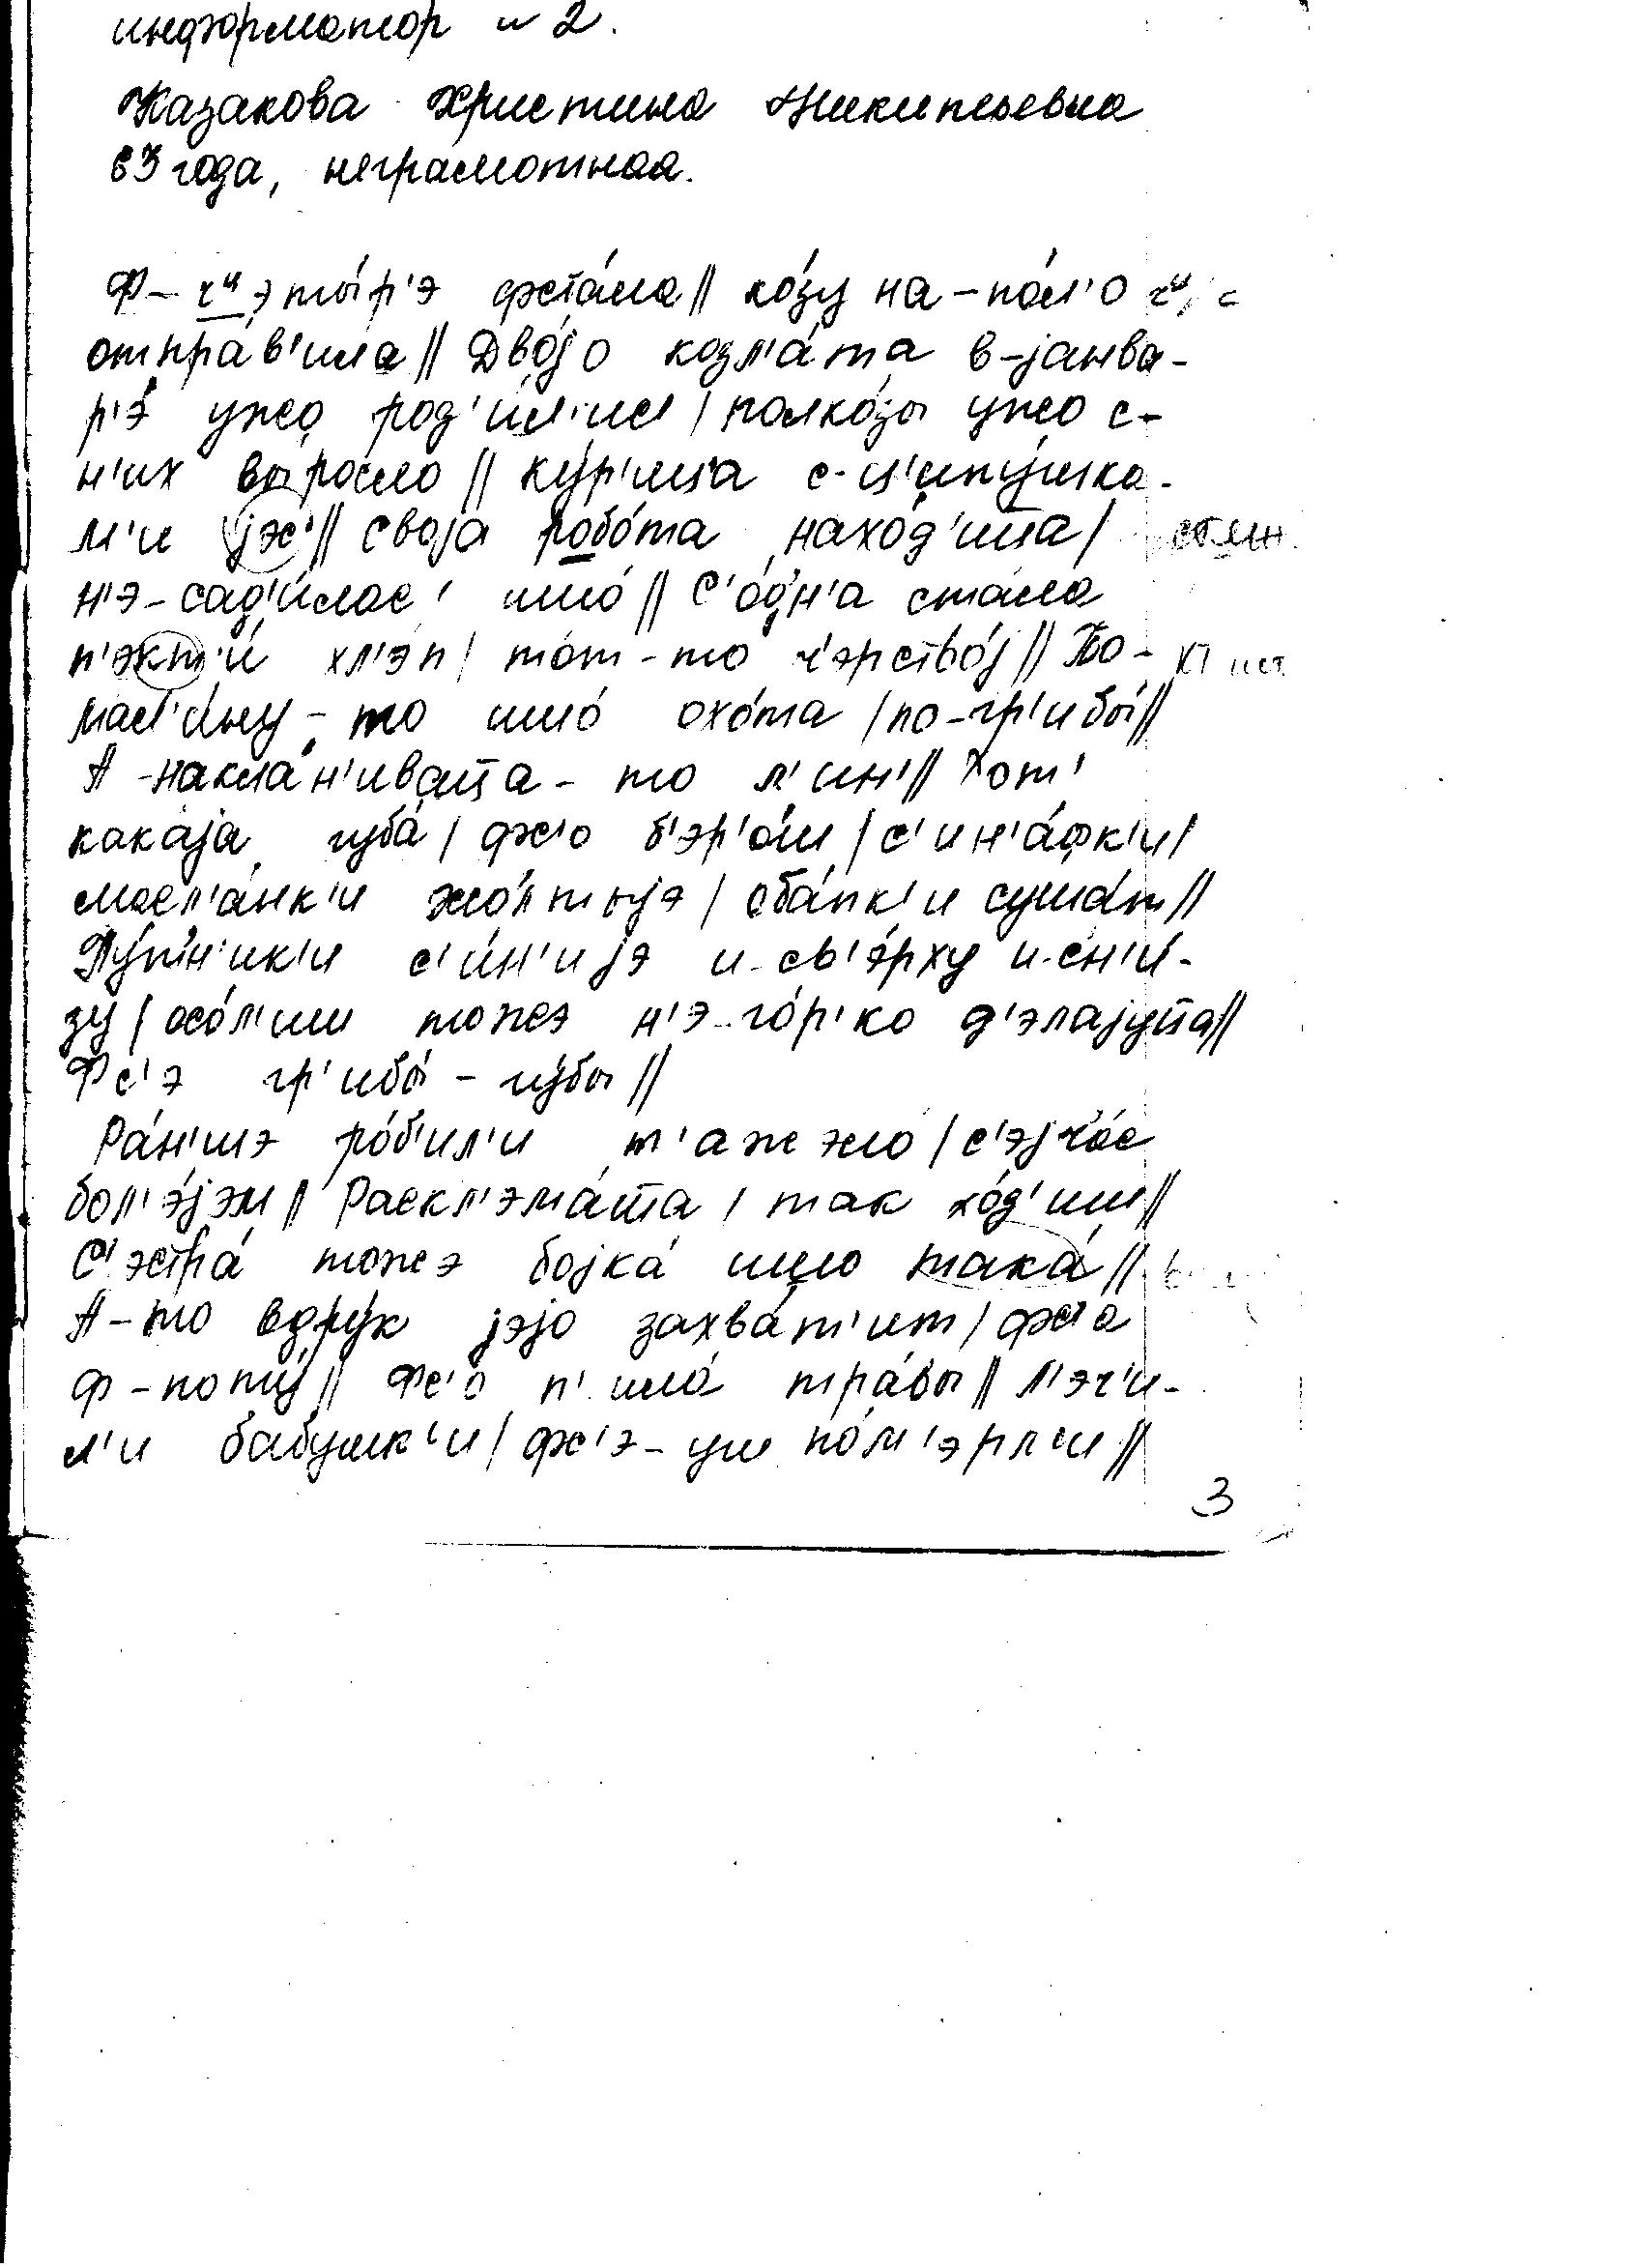 информатор № 2.
Казакова Христина Никитьевна
63 года, неграмотная.
Ф-чᶣэты́р'э фста́ла // ко́зу на-по́л'о
отпра́в'ила // Дво́jо козл'а́та в-jанва-
р'э́ ужо род'и́л'ис / полко́зы ужо с-
н'их вы́росло // ку́р'ица с-ц'ипу́шка-
м'и jэс' // своjа́ робо́та нахо́д'ицца /
н'э-сад'и́лас' ишо́ // С'о́дн'а ста́ла
п'экт'и́ хл'эп / то́т-то ч'эрство́j // По-
мал'и́ну-то ишо́ охо́та / по-гр'ибы́ //
А-накла́н'иваццa-то л'ин' // Хот'
кака́jа губа́ / фс'о б'эр'о́ш / с'ин'а́фк'и /
масл'а́нк'и жо́лтыjэ / оба́пк'и суша́т //
Пу́тн'ик'и с'и́н'иjэ и-св'э́рху и-сн'и́-
зу / осо́л'иш тожэ н'э-го́р'ко д'э́лаjуцца //
Фс'э гр'ибы́ - гу́бы //
Ра́н'шэ ро́б'ил'и т'ажжо́ / с'эjча́с
бол'э́jэм // Раскл'эма́цца / так хо́д'иш //
С'эстра́ тожэ боjка́ ишшо така́ //
А-то вдру́к jэjо захва́т'ит / фс'а
ф-поту́ // Фс'о п'ила́ тра́вы // Л'эч'и-
л'и бабушк'и / фс'э-уш по́м'эрл'и //
3